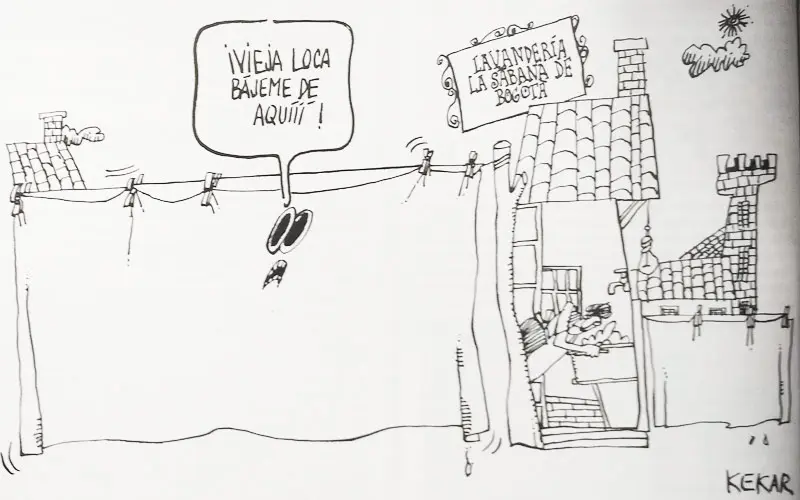 ¡VIEJA LOCA
BÁJEME DE
AQUIÍÍ!
LAVANDERÍA
LA SÁBANA DE
BOGOTA
KEKAR